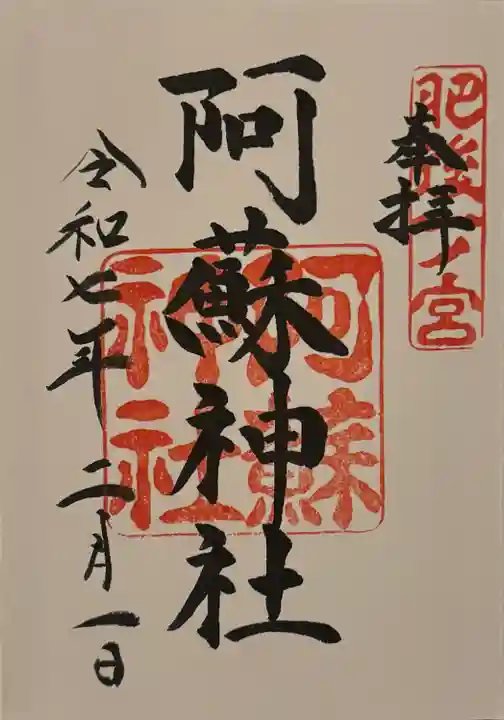 肥後一ノ宮
奉拝
阿蘇神社
阿蘇神社
令和七年 二月一日